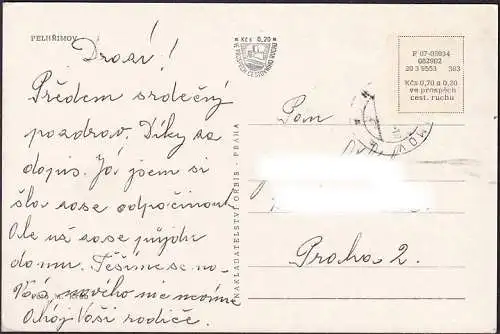 PELHŘIMOV
Drazí!
Předem srdečný
pozdrav. Díky za
dopis. Já jsem si
šla zase odpočinout
Ale už zase půjdu
domu. Těšíme se na
Vás, nového nic nevíme
Ahoj Vaši rodiče.
Kčs 0,20
VE PROSPĚCH CESTOVNÍHO RUCHU
F 07-05934
G62902
20 3 5553 383
Kčs 0,70 a 0,20
ve prospěch
cest. ruchu
NAKLADATELSTVÍ ORBIS - PRAHA
Pan
Praha 2.